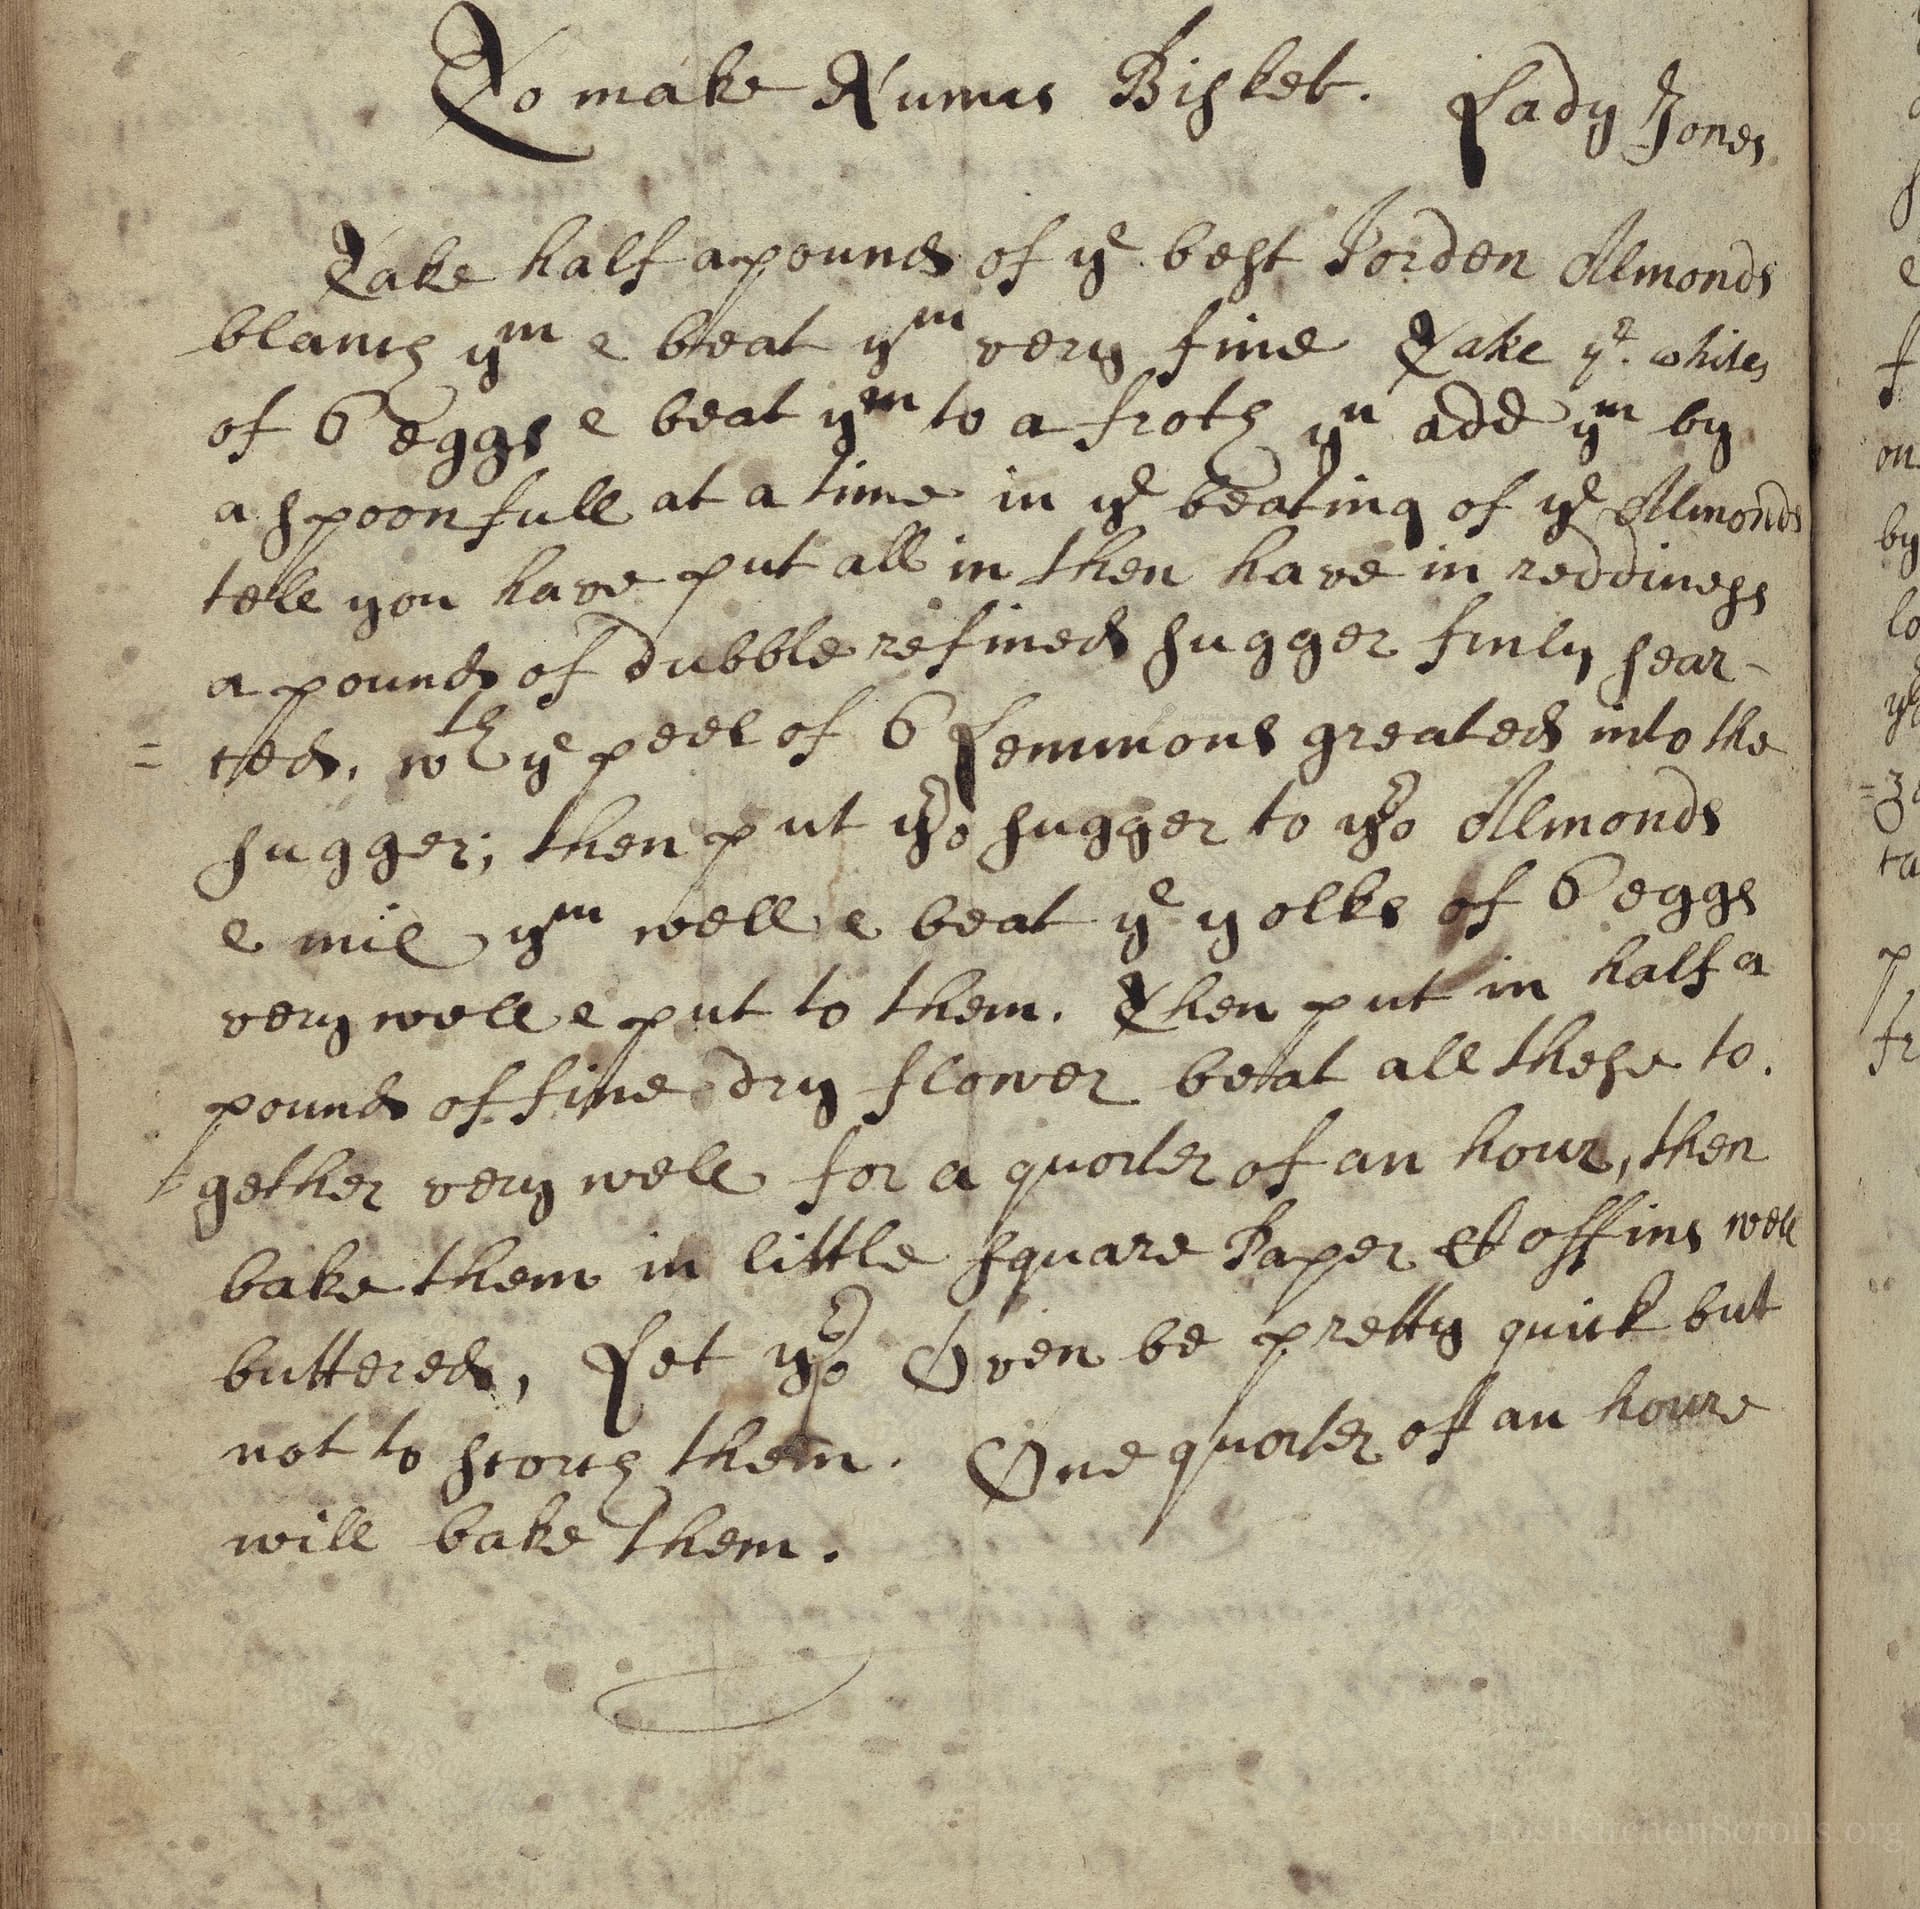 To make Nunns Bisket. Lady Jones
Take half a pound of ye best Jorden Allmonds
blanch ym & beat ym very fine Take ye. whites
of 6 eggs & beat ym to a froth yn add ym by
a spoonfull at a time in ye beating of ye Allmonds
tell you have put all in then have in reddiness
a pound of dubble refined sugger finly sear-
=ced, wth ye peel of 6 Lemmons greated into the
sugger; then put ye sugger to ye Allmonds
& mix ym well & beat ye yolks of 6 eggs
very well & put to them. Then put in half a
pound of fine dry flower beat all these to.
gether very well for a quorter of an hour, then
bake them in little square Paper Coffins well
buttered, Let ye Oven be pretty quick but
not to scorch them. One quorter of an houre
will bake them.
LostKitchenScrolls.org